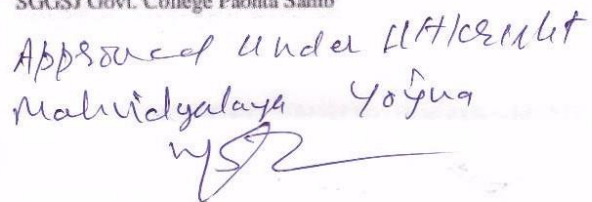 SGGSJ Govt. College Paonta Sahib
Approved under Utkrisht
Mahvidyalaya Yojna